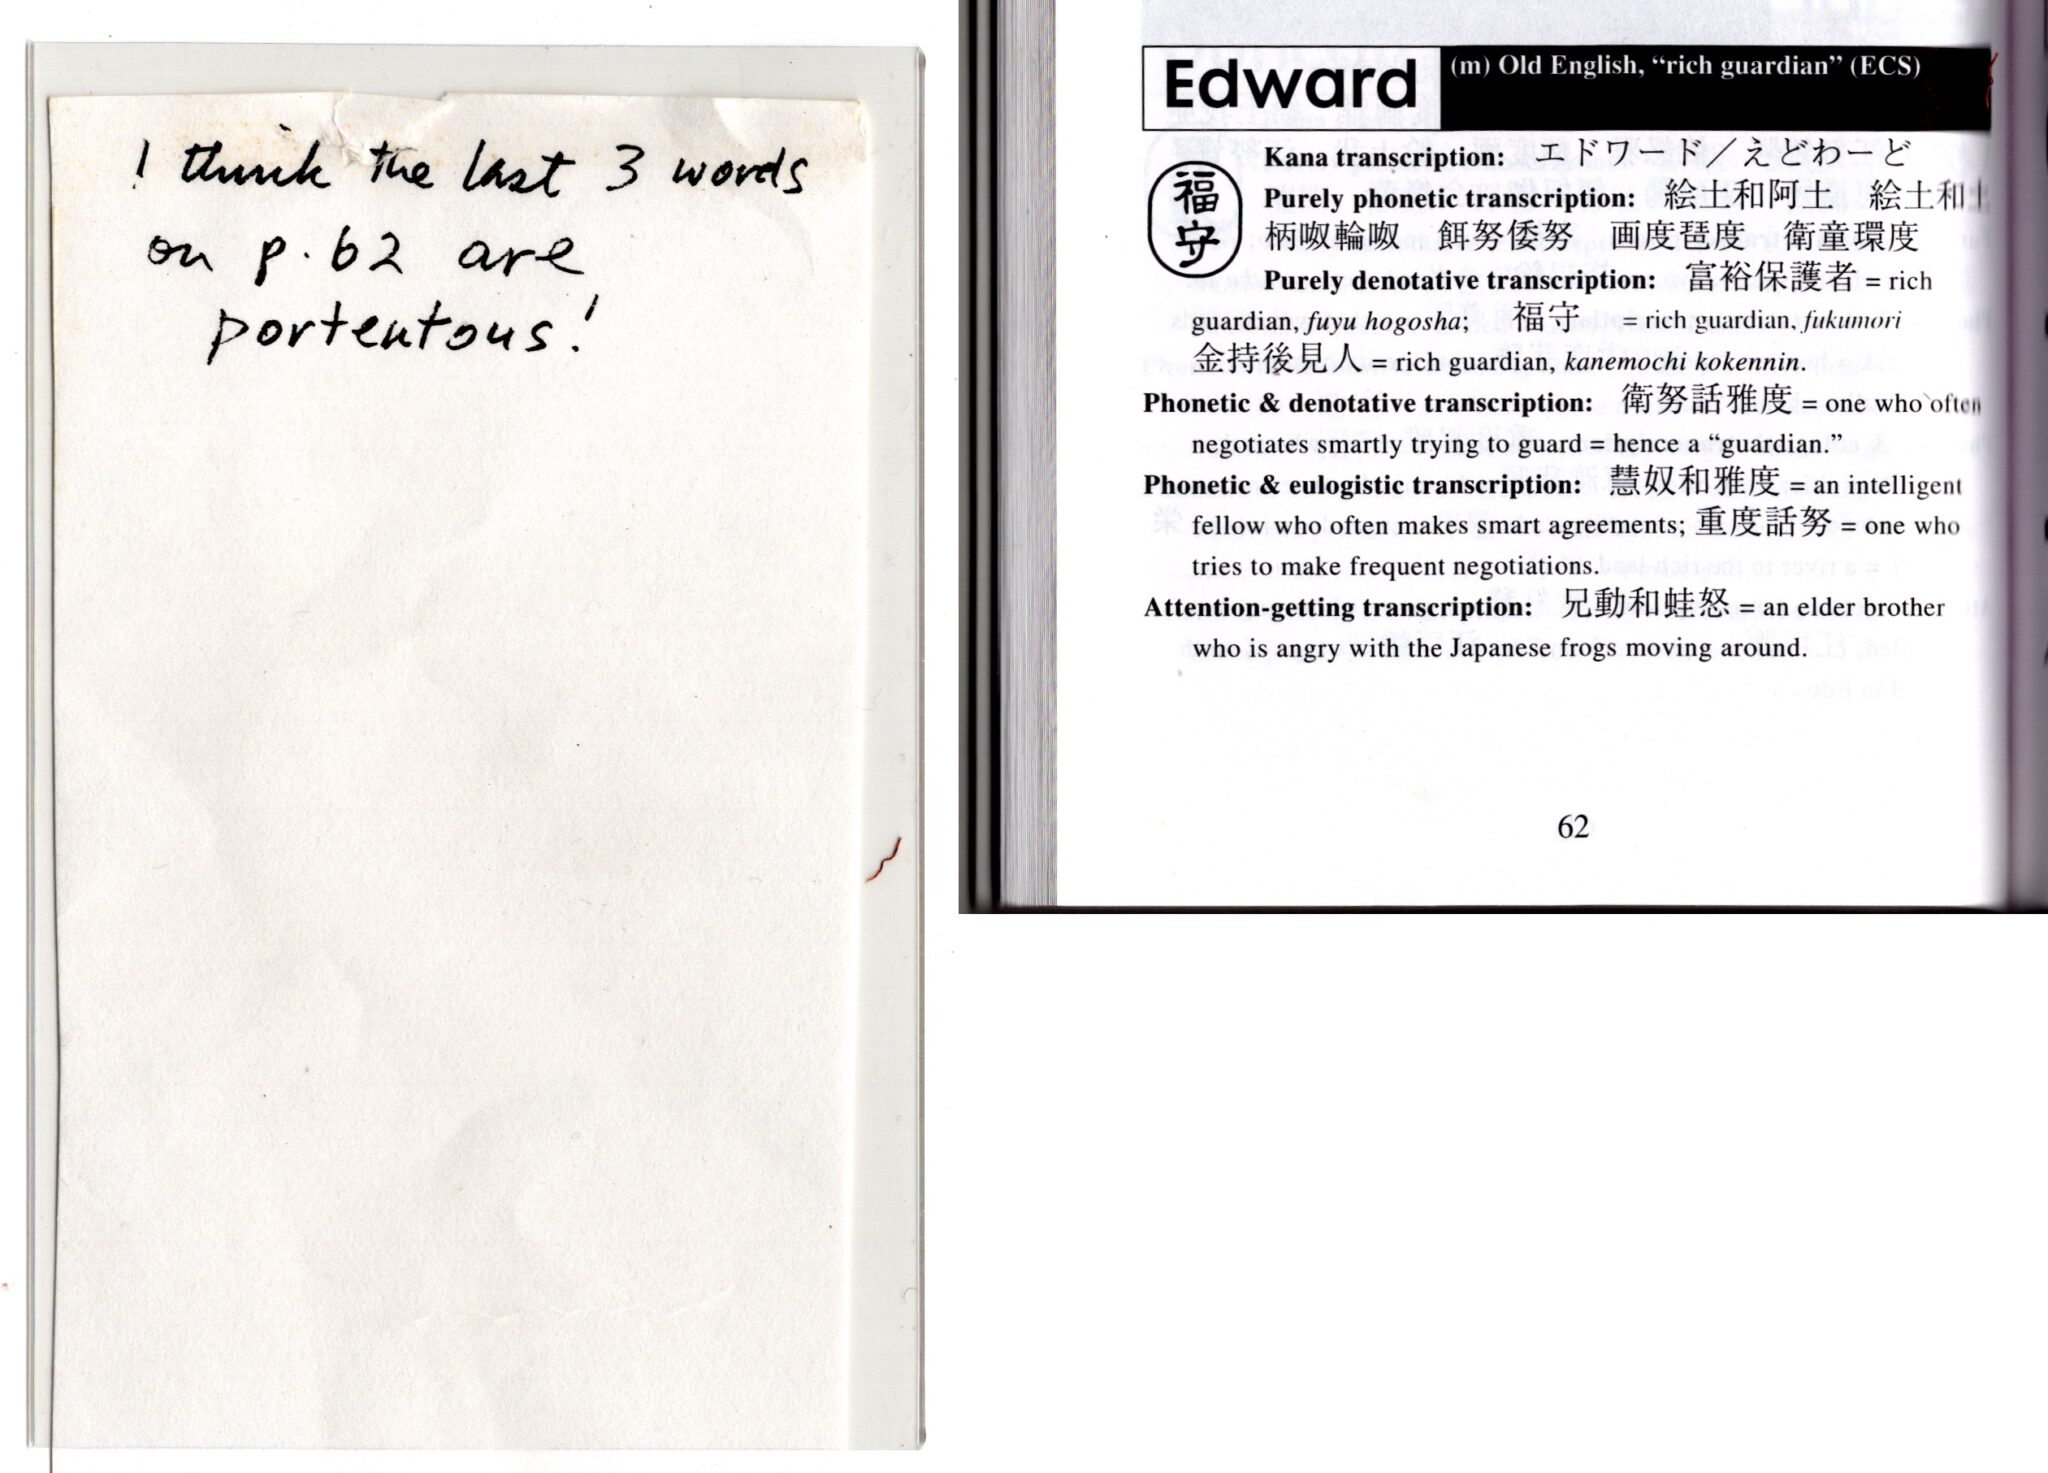 I think the last 3 words
on p. 62 are
portentous!
Edward
(m) Old English, “rich guardian” (ECS)
福守
Kana transcription: エドワード／えどわーど
Purely phonetic transcription: 絵土和阿土 絵土和土
柄呶輪呶 餌努倭努 画度琶度 衛童環度
Purely denotative transcription: 富裕保護者 = rich
guardian, fuyu hogosha; 福守 = rich guardian, fukumori
金持後見人 = rich guardian, kanemochi kokennin.
Phonetic & denotative transcription: 衛努話雅度 = one who often
negotiates smartly trying to guard = hence a “guardian.”
Phonetic & eulogistic transcription: 慧奴和雅度 = an intelligent
fellow who often makes smart agreements; 重度話努 = one who
tries to make frequent negotiations.
Attention-getting transcription: 兄動和蛙怒 = an elder brother
who is angry with the Japanese frogs moving around.
62